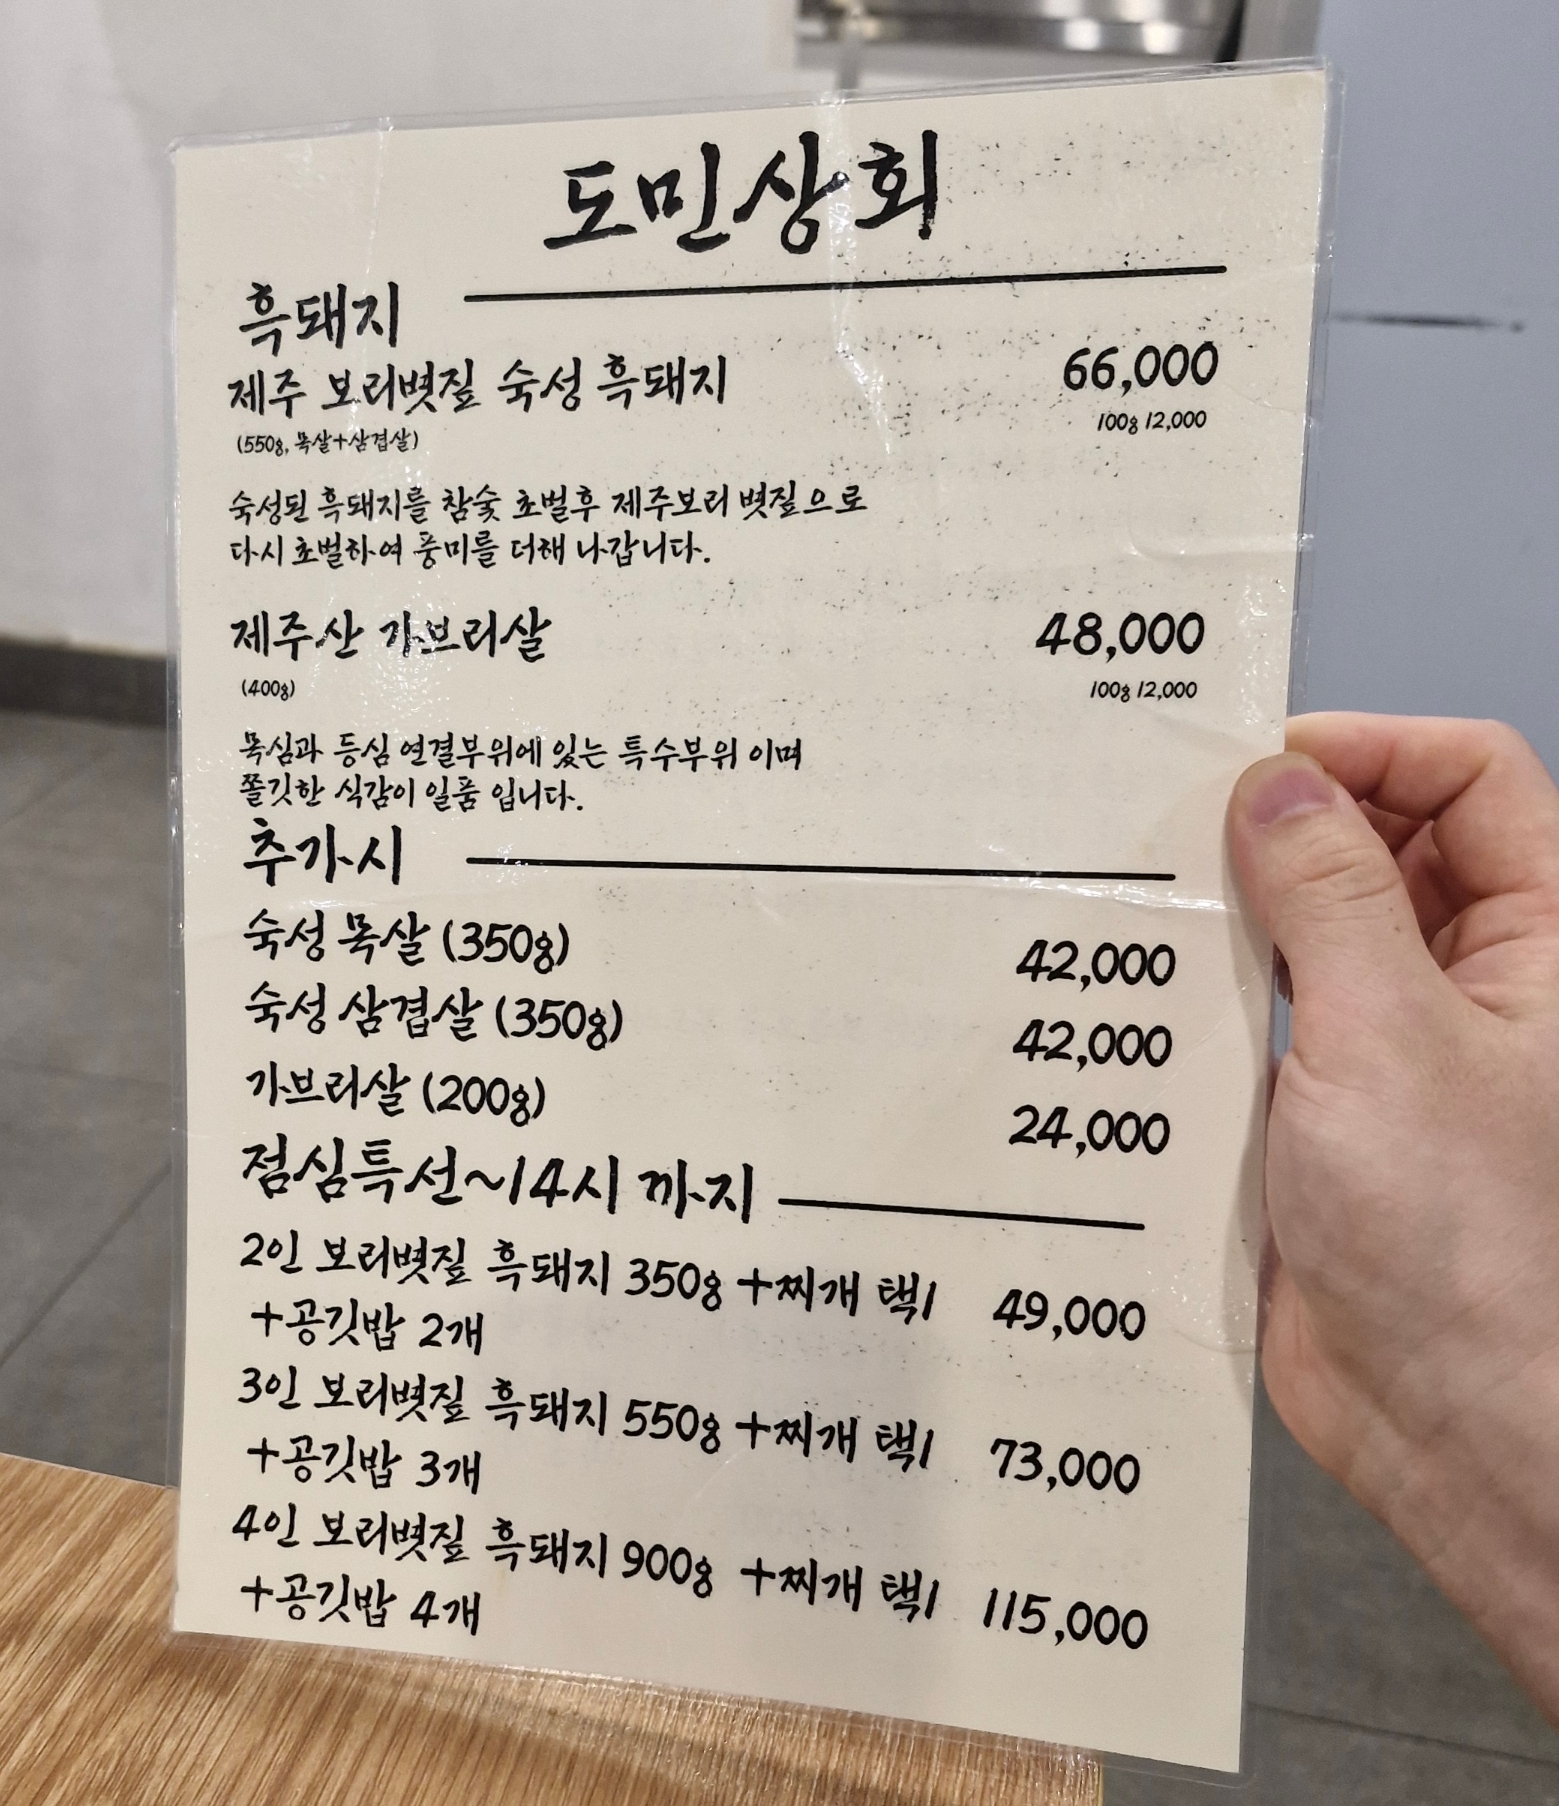 도민상회
흑돼지
제주 보리볏짚 숙성 흑돼지 66,000
(550g, 목살+삼겹살) 100g 12,000
숙성된 흑돼지를 참숯 초벌후 제주보리 볏짚으로
다시 초벌하여 풍미를 더해 나갑니다.
제주산 가브리살 48,000
(400g) 100g 12,000
목심과 등심 연결부위에 있는 특수부위 이며
쫄깃한 식감이 일품 입니다.
추가시
숙성 목살 (350g) 42,000
숙성 삼겹살 (350g) 42,000
가브리살 (200g) 24,000
점심특선~14시 까지
2인 보리볏짚 흑돼지 350g +찌개 택1 49,000
+공깃밥 2개
3인 보리볏짚 흑돼지 550g +찌개 택1 73,000
+공깃밥 3개
4인 보리볏짚 흑돼지 900g +찌개 택1 115,000
+공깃밥 4개